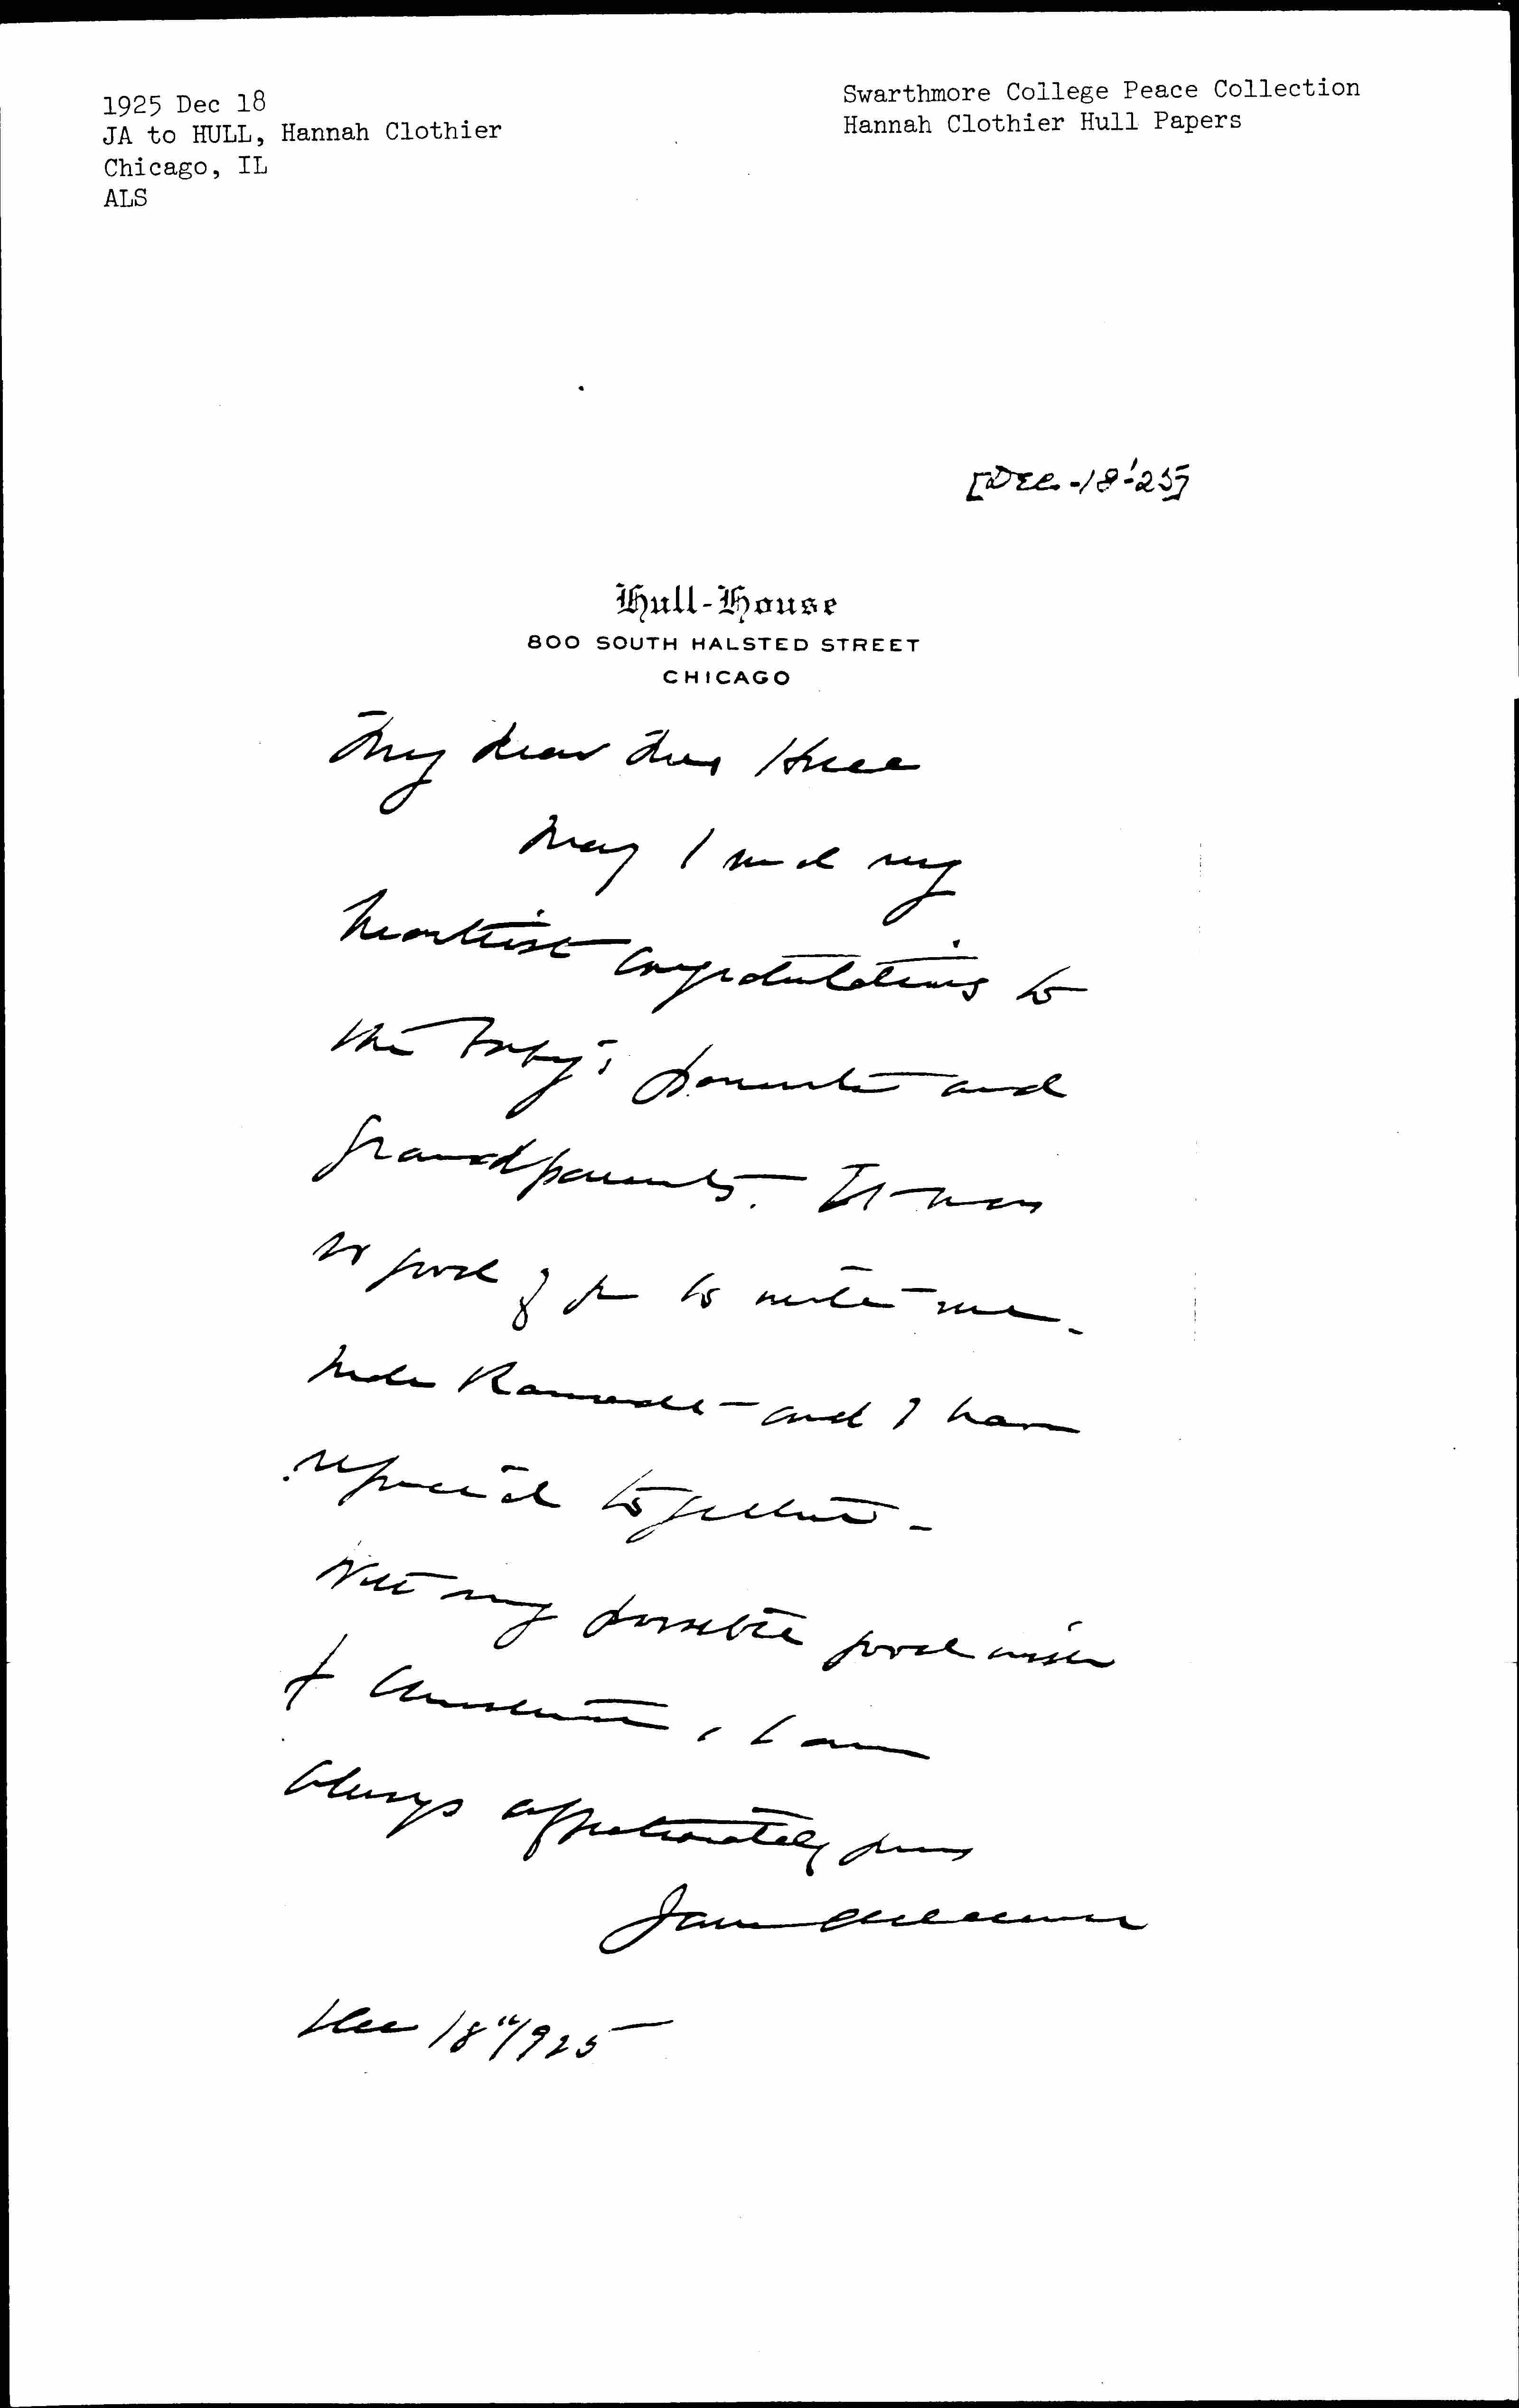 1925 Dec 18
JA to HULL, Hannah Clothier
Chicago, IL
ALS
Swarthmore College Peace Collection
Hannah Clothier Hull Papers
[Dec-18-'25]
Hull-House
800 SOUTH HALSTED STREET
CHICAGO
My dear Mrs Hull
May I send my
heartiest congratulations to
the baby's parents and
grandparents. It was
so good of you to write me.
and I have
rejoiced together.
With every possible good wish
I am
always affectionately yours
Jane Addams
Dec 18" 1925